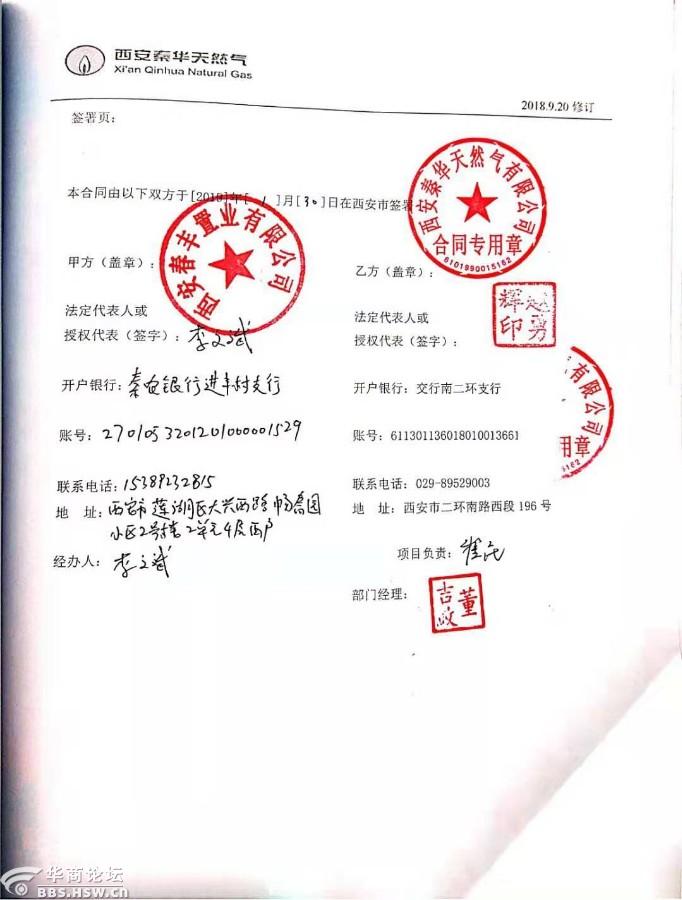 西安秦华天然气
Xi'an Qinhua Natural Gas
2018.9.20 修订
签署页：
本合同由以下双方于[2019]年[ 1 ]月[30]日在西安市签署
西安春丰置业有限公司
西安秦华天然气有限公司
合同专用章
6101990015162
甲方（盖章）：
乙方（盖章）：
法定代表人或
授权代表（签字）：李文斌
法定代表人或
授权代表（签字）：
赵勇辉印
开户银行：秦农银行进丰村支行
开户银行：交行南二环支行
有限公司
用章
账号：2701053201201000001529
账号：611301136018010013661
联系电话：15389232815
联系电话：029-89529003
地 址：西安市莲湖区大兴西路畅鑫园
小区2号楼2单元4层西户
地 址：西安市二环南路西段 196 号
经办人：李文斌
项目负责：
部门经理：
董吉政
华商论坛
BBS.HSW.cn